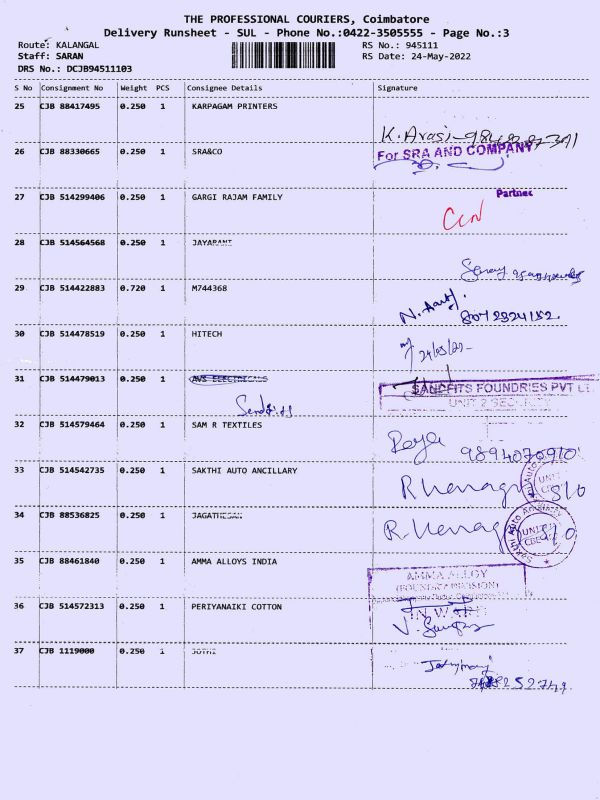 THE PROFESSIONAL COURIERS, Coimbatore
Delivery Runsheet - SUL - Phone No.:0422-3505555 - Page No.:3
Route: KALANGAL RS No.: 945111
Staff: SARAN RS Date: 24-May-2022
DRS No.: DCJB94511103
S No Consignment No Weight PCS Consignee Details Signature
25 CJB 88417495 0.250 1 KARPAGAM PRINTERS
K. Arasi
26 CJB 88330665 0.250 1 SRA&CO For SRA AND COMPANY
Partner
27 CJB 514299406 0.250 1 GARGI RAJAM FAMILY
28 CJB 514564568 0.250 1 JAYARANI
29 CJB 514422883 0.720 1 M744368
8072324152
30 CJB 514478519 0.250 1 HITECH
31 CJB 514479013 0.250 1 AVS ELECTRICALS SANDFITS FOUNDRIES PVT
UNIT 2
32 CJB 514579464 0.250 1 SAM R TEXTILES
9894070910
33 CJB 514542735 0.250 1 SAKTHI AUTO ANCILLARY
34 CJB 88536825 0.250 1 JAGATHESAN
Sakthi Auto Ancillary
35 CJB 88461840 0.250 1 AMMA ALLOYS INDIA AMMA ALLOY
36 CJB 514572313 0.250 1 PERIYANAIKI COTTON INWARD
37 CJB 1119000 0.250 1 JOTHI